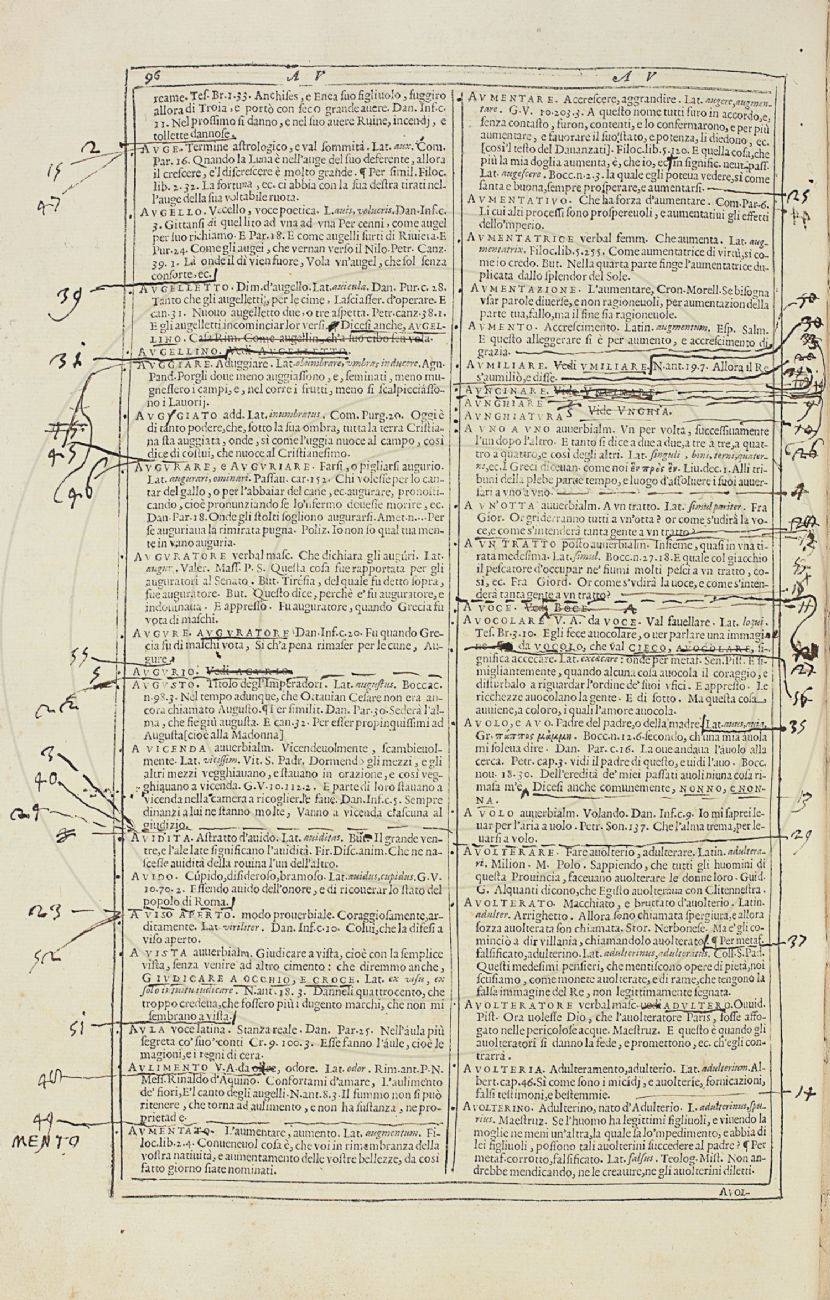 96 A V
A V
reame. Tes. Br. 1. 33. Anchises, e Enea suo figliuolo, fuggiro
allora di Troia, e portò con seco grande avere. Dan. Inf. c.
11. Nel prossimo si danno, e nel suo avere Ruine, incendj, e
tollette dannose.
AVGE. Termine astrologico, e val sommità. Lat. aux. Com.
Par. 16. Quando la Luna è nell'auge del suo deferente, allora
il crescere, e'l discrescere è molto grande. ¶ Per simil. Filoc.
lib. 2. 32. La fortuna, ec. ci abbia con la sua destra tirati nel-
l'auge della sua voltabile ruota.
AVGELLO. Vccello, voce poetica. L. auis, volucris. Dan. Inf. c.
3. Gittansi di quel lito ad vna ad vna Per cenni, come augel
per suo richiamo. E Par. 18. E come augelli surti di Riuiera. E
Pur. 24. Come gli augei, che vernan verso il Nilo. Petr. Canz.
39. 1. Là onde il dì vien fuore, Vola vn'augel, che sol senza
consorte, ec.
AVGELLETTO. Dim. d'augello. Lat. auicula. Dan. Pur. c. 28.
Tanto che gli augelletti, per le cime, Lasciasser d'operare. E
can. 31. Nuouo augelletto due, o tre aspetta. Petr. canz. 38. 1.
E gli augelletti incominciar lor versi. Dicesi anche, AVGEL-
LINO.
AVGELLINO.
AVGGIARE. Aduggiare. Lat. obumbrare, umbras inducere. Agn.
Pand. Porgli doue meno auggiassono, e, seminati, meno mu-
gnessero i campi, e, nel corre i frutti, meno si scalpicciasso-
no i lauorij.
AVGGIATO add. Lat. inumbratus. Com. Purg. 20. Oggi è
di tanto podere, che, sotto la sua ombra, tutta la terra Cristia-
na sta auggiata, onde, sì come l'uggia nuoce al campo, così
dice di costui, che nuoce al Cristianesimo.
AVGVRARE, e AVGVRIARE. Farsi, o pigliarsi augurio.
Lat. augurari, ominari. Passau. car. 152. Chi volesse per lo can-
tar del gallo, o per l'abbaiar del cane, ec. augurare, pronosti-
cando, cioè pronunziando se lo'nfermo douesse morire, ec.
Dan. Par. 18. Onde gli stolti sogliono augurarsi. Amet. n... Per
se auguriana la rimirata pugna. Poliz. Io non so qual tua men-
te in vano auguria.
AVGVRATORE verbal masc. Che dichiara gli augúri. Lat.
augur. Valer. Mass. P. S. Questa cosa fue rapportata per gli
auguratori al Senato. But. Tiresia, del quale fu detto sopra,
fue auguratore. But. Questo dice, perchè e' fu auguratore, e
indouinaua. E appresso. Fu auguratore, quando Grecia fu
vota di maschi.
AVGVRE. AVGVRATORE Dan. Inf. c. 20. Fu quando Gre-
cia fu di maschi vota, Sì ch'a pena rimaser per le cune, Au-
gure.
AVGVRIO. Vedi AGVRIO.
AVGVSTO. Titolo degl'Imperadori. Lat. augustus. Boccac.
n. 98. 3. Nel tempo adunque, che Ottauian Cesare non era an-
cora chiamato Augusto. ¶ Per similit. Dan. Par. 30. Sederà l'al-
ma, che fie giù augusta. E can. 32. Per esser propinquissimi ad
Augusta [cioè alla Madonna]
A VICENDA auuerbialm. Vicendeuolmente, scambieuol-
mente. Lat. vicissim. Vit. S. Padr. Dormendo gli mezzi, e gli
altri mezzi vegghiauano, e stauano in orazione, e così veg-
ghiauano a vicenda. G. V. 10. 112. 2. E parte di loro stauano a
vicenda nella camera a ricoglier le faue. Dan. Inf. 5. Sempre
dinanzi a lui ne stanno molte, Vanno a vicenda ciascuna al
giudizio.
AVIDITA. Astratto d'auido. Lat. auiditas. But. Il grande ven-
tre, e l'ale late significano l'auidità. Fir. Disc. anim. Che ne na-
scesse auidità della rouina l'un dell'altro.
AVIDO. Cúpido, disideroso, bramoso. Lat. auidus, cupidus. G. V.
10. 70. 2. Essendo auido dell'onore, e di ricouerar lo stato del
popolo di Roma.
A VISO APERTO. modo prouerbiale. Coraggiosamente, ar-
ditamente. Lat. viriliter. Dan. Inf. c. 10. Colui, che la difesi a
viso aperto.
A VISTA auuerbialm. Giudicare a vista, cioè con la semplice
vista, senza venire ad altro cimento: che diremmo anche,
GIVDICARE A OCCHIO, E CROCE. Lat. ex visu, ex
solo intuitu iudicare. N. ant. 18. 3. Dannoli quattrocento, che
troppo credeua, che fossero più i dugento marchi, che non mi
sembrano a vista.
AVLA voce latina. Stanza reale. Dan. Par. 25. Nell'áula più
segreta co' suo' conti Cr. 9. 100. 3. Esse fanno l'áule, cioè le
magioni, e i regni di cera.
AVLIMENTO V. A. da, odore. Lat. odor. Rim. ant. P. N.
Mess. Rinaldo d'Aquino. Confortami d'amare, L'aulimento
de' fiori, E'l canto degli augelli. N. ant. 8. 3. Il fummo non si può
ritenere, che torna ad aulimento, e non ha sustanza, ne pro-
prietad e.
AVMENTATO. L'aumentare, aumento. Lat. augmentum. Fi-
loc. lib. 2. 4. Conueneuol cosa è, che voi in rimembranza della
vostra natiuità, e aumentamento delle vostre bellezze, da così
fatto giorno siate nominati.
AVMENTARE. Accrescere, aggrandire. Lat. augere, augmen-
tare. G. V. 10. 203. 3. A questo nome tutti furo in accordo, e,
senza contasto, furon, contenti, e lo confermarono, e per più
aumentare, e fauorare il suo stato, e potenza, li diedono, ec.
[così'l testo del Dauanzati]. Filoc. lib. 5. 120. E quella cosa, che
più la mia doglia aumenta, è, che io, ec. in signific. neut. pass.
Lat. augescere. Bocc. n. 2. 3. la quale egli poteua vedere, sì come
santa e buona, sempre prosperare, e aumentarsi.
AVMENTATIVO. Che ha forza d'aumentare. Com. Par. 6.
Li cui alti processi sono prospereuoli, e aumentatiui gli effetti
dello'mperio.
AVMENTATRICE verbal femm. Che aumenta. Lat. aug-
mentatrix. Filoc. lib. 5. 255. Come aumentatrice di virtù, sì co-
me io credo. But. Nella quarta parte finge l'aumentatrice du-
plicata dallo splendor del Sole.
AVMENTAZIONE. L'aumentare, Cron. Morell. Se bisogna
vsar parole diuerse, e non ragioneuoli, per aumentazion della
parte tua, fallo, ma il fine sia ragioneuole.
AVMENTO. Accrescimento. Latin. augmentum. Esp. Salm.
E questo alleggerare si è per aumento, e accrescimento di
grazia.
AVMILIARE. Vedi VMILIARE. N. ant. 19. 7. Allora il Re
s'aumiliò, e disse.
AVNCINARE. Vedi VNCINARE.
AVNGHIARE
AVNGHIATVRA Vide VNGHIA.
A VNO A VNO auuerbialm. Vn per volta, successiuamente
l'un dopo l'altro. E tanto si dice a due a due, a tre a tre, a quat-
tro a quattro, e così degli altri. Lat. singuli, bini, terni, quater-
ni, ec. I Greci diceuan come noi ἓν πρὸς ἕν. Liu. dec. 1. Alli tri-
buni della plebe parue tempo, e luogo d'assoluere i suoi auuer-
sari a vno a vno.
A VN'OTTA auuerbialm. A vn tratto. Lat. simul pariter. Fra
Gior. Or griderranno tutti a vn'otta? or come s'udirà la vo-
ce, e come s'intenderà tanta gente a vn tratto?
A VN TRATTO posto auuerbialm. Insieme, quasi in vna ti-
rata medesima. Lat. simul. Bocc. n. 27. 18. E quale col giacchio
il pescatore d'occupar ne' fiumi molti pesci a vn tratto, co-
sì, ec. Fra Giord. Or come s'vdirà la uoce, e come s'inten-
derà tanta gente a vn tratto?
A VOCE. Vedi BOCE.
AVOCOLARE V. A. da VOCE. Val fauellare. Lat. loqui.
Tes. Br. 3. 10. Egli fece auocolare, o uer parlare una immagi-
ne da VOCOLO, che val CIECO, AVOCOLARE, si-
gnifica accecare. Lat. excæcare: onde per metaf. Sen. Pist. E si-
migliantemente, quando alcuna cosa auocola il coraggio, e
disturbalo a riguardar l'ordine de' suoi vfici. E appresso. Le
ricchezze auocolano la gente. E di sotto. Ma questa cosa
auuiene, a coloro, i quali l'amore auocola.
AVOLO, E AVO. Padre del padre, o della madre. Lat. auus, auia.
Gr. πάππος μάμμη. Bocc. n. 12. 6. secondo, ch'una mia auola
mi soleua dire. Dan. Par. c. 16. La oue andaua l'áuolo alla
cerca. Petr. cap. 3. vidi il padre di questo, e uidi l'auo. Bocc.
nou. 18. 30. Dell'eredità de' miei passati auoli niuna cosa ri-
masa m'è. Dicesi anche comunemente, NONNO, E NON-
NA.
A VOLO auuerbialm. Volando. Dan. Inf. c. 9. Io mi saprei le-
uar per l'aria a uolo. Petr. Son. 137. Che l'alma trema, per le-
uarsi a volo.
AVOLTERARE. Fare auolterio, adulterare. Latin. adultera-
re. Milion. M. Polo. Sappiendo, che tutti gli huomini di
questa Prouincia, faceuano auolterare le donne loro. Guid.
G. Alquanti dicono, che Egisto auolteraua con Clitennestra.
AVOLTERATO. Macchiato, e bruttato d'auolterio. Latin.
adulter. Arrighetto. Allora sono chiamata spergiura, e allora
sozza auolterata son chiamata. Stor. Nerbonese. Ma e' gli co-
minciò a dir villania, chiamandolo auolterato. ¶ Per metaf.
falsificato, adulterino. Lat. adulterinus, adulteratus. Coll. S. Pad.
Questi medesimi pensieri, che mentiscono opere di pietà, noi
scusiamo, come monete auolterate, e di rame, che tengono la
falsa immagine del Re, non legittimamente segnata.
AVOLTERATORE verbal masc. vedi ADVLTERO. Ouuid.
Pist. Ora uolesse Dio, che l'auolteratore Paris, fosse affo-
gato nelle pericolose acque. Maestruz. E questo è quando gli
auolteratori si danno la fede, e promettono, ec. ch'egli con-
trarrà.
AVOLTERIA. Adulteramento, adulterio. Lat. adulterium. Al-
bert. cap. 46. Sì come sono i micidj, e auolterie, fornicazioni,
falsi testimoni, e bestemmie.
AVOLTERINO. Adulterino, nato d'Adulterio. L. adulterinus, spu-
rius. Maestruz. Se l'huomo ha legittimi figliuoli, e viuendo la
moglie ne meni un'altra, la quale sa lo'mpedimento, e abbia di
lei figliuoli, possono tali auolterini succedere al padre? ¶ Per
metaf. corrotto, falsificato. Lat. falsus. Teolog. Mist. Non an-
drebbe mendicando, ne le creature, ne gli auolterini diletti.
AVOL-
2
15
47
39
45
46
55
5
3
40
29
23
52
51
49
MENTO
25
35
13
29
37
14
56